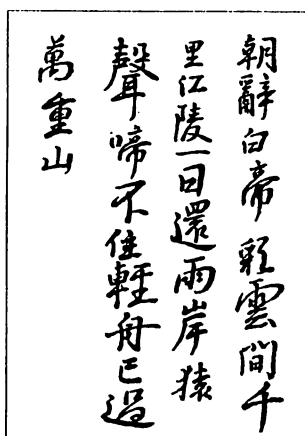 朝辭白帝彩雲間千
里江陵一日還兩岸猿
聲啼不住輕舟已過
萬重山